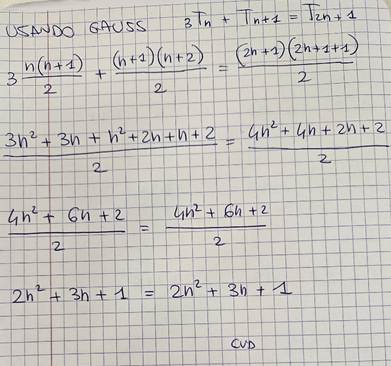 USANDO GAUSS 3Tn + Tn+1 = T2n+1
3 n(n+1)/2 + (n+1)(n+2)/2 = (2n+1)(2n+1+1)/2
(3n² + 3n + n² + 2n + n + 2)/2 = (4n² + 4n + 2n + 2)/2
(4n² + 6n + 2)/2 = (4n² + 6n + 2)/2
2n² + 3n + 1 = 2n² + 3n + 1
CVD